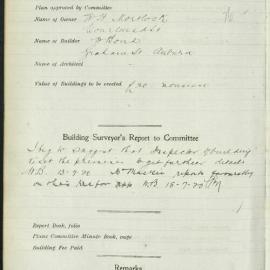 Plan approved by Committee
Name of Owner W. H. Mortlock
Name of Builder F. Bond
Graham St Auburn
Name of Architect -
Value of Buildings to be erected £20
Building Surveyor's Report to Committee
I beg to suggest that Inspector of building
visit the premises & get further details
M.B. 13-7-20 reports favourably
on this 15-7-20
Report Book, folio
Plans Committee Minute Book, page
Building Fee Paid
Remarks